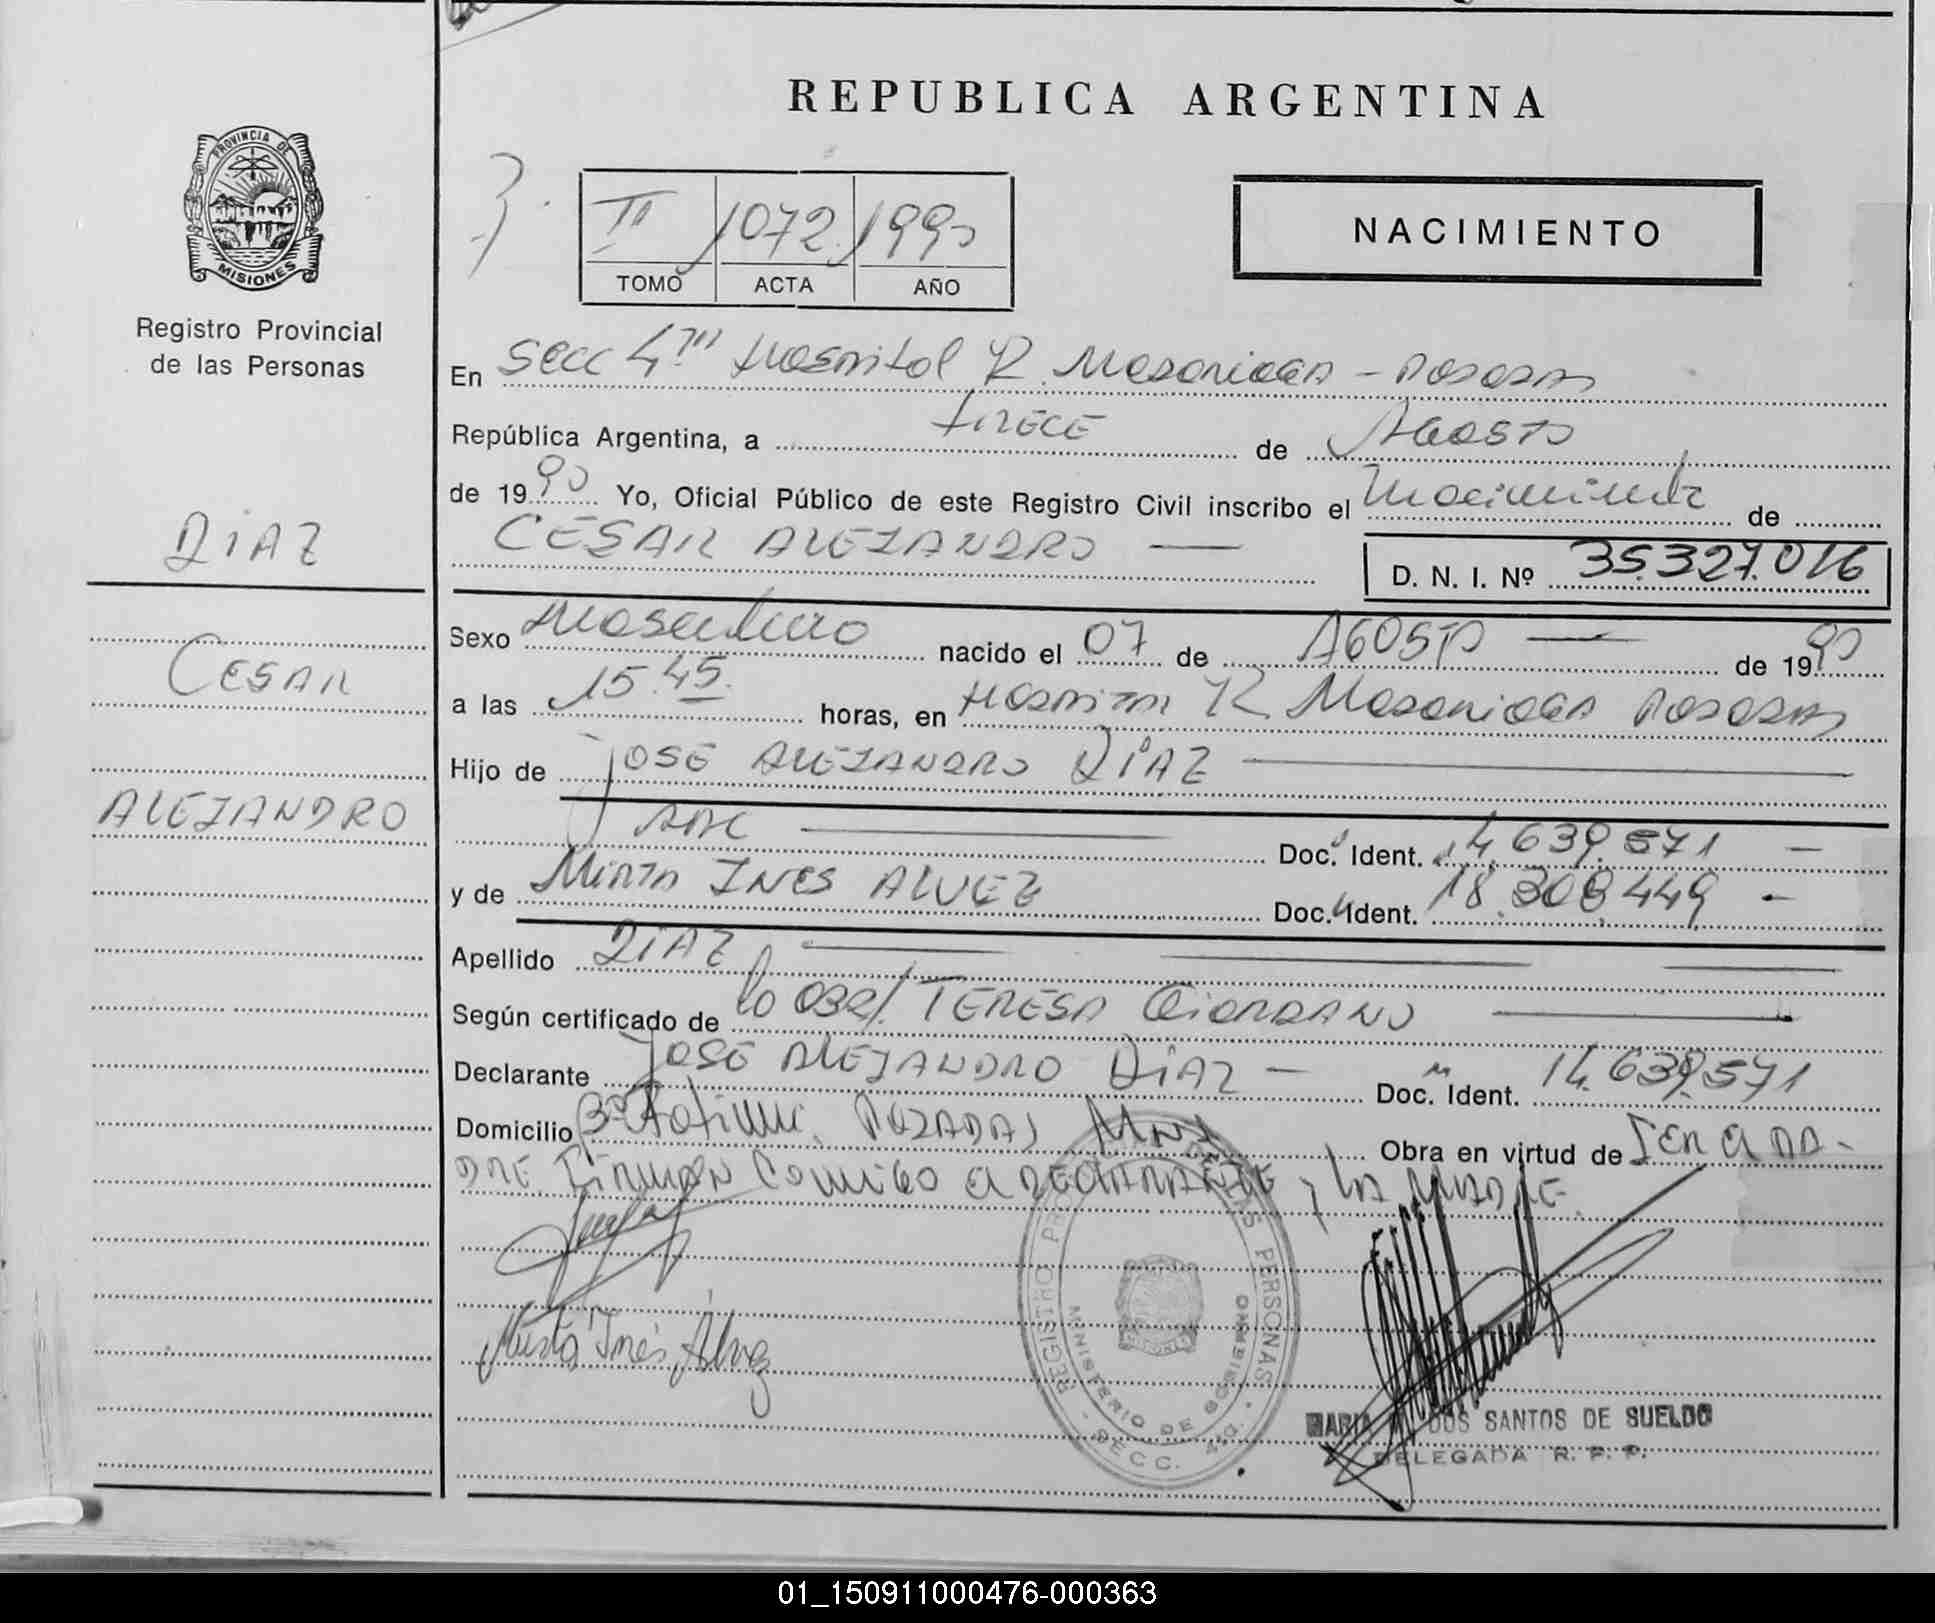 REPUBLICA ARGENTINA
PROVINCIA DE
MISIONES
Registro Provincial
de las Personas
II 1072 1990
TOMO ACTA AÑO
NACIMIENTO
En Secc 4ta Hospital R. Madariaga - Posadas
República Argentina, a trece de Agosto
de 1990 Yo, Oficial Público de este Registro Civil inscribo el Nacimiento de
CESAR ALEJANDRO
D. N. I. Nº 35.327.016
DIAZ
CESAR
ALEJANDRO
Sexo masculino nacido el 07 de AGOSTO de 1990
a las 15.45. horas, en Hospital R. Madariaga Posadas
Hijo de JOSE ALEJANDRO DIAZ
Doc. Ident. 14.639.571 -
y de Mirta INES ALVEZ Doc. Ident. 18.308.449 -
Apellido DIAZ
Según certificado de la Obst. TERESA GIORDANO
Declarante JOSE ALEJANDRO DIAZ - Doc. Ident. 14.639.571
Domicilio Bº Fatima. POSADAS Mnes Obra en virtud de SER EL PA-
DRE. Firman Conmigo el DECLARANTE y LA MADRE.
Mirta Inés Alvez
REGISTRO PROVINCIAL DE LAS PERSONAS
MINISTERIO DE GOBIERNO
SECC. 4ta.
MARIA DOS SANTOS DE SUELDO
DELEGADA R. P. P.
01_150911000476-000363